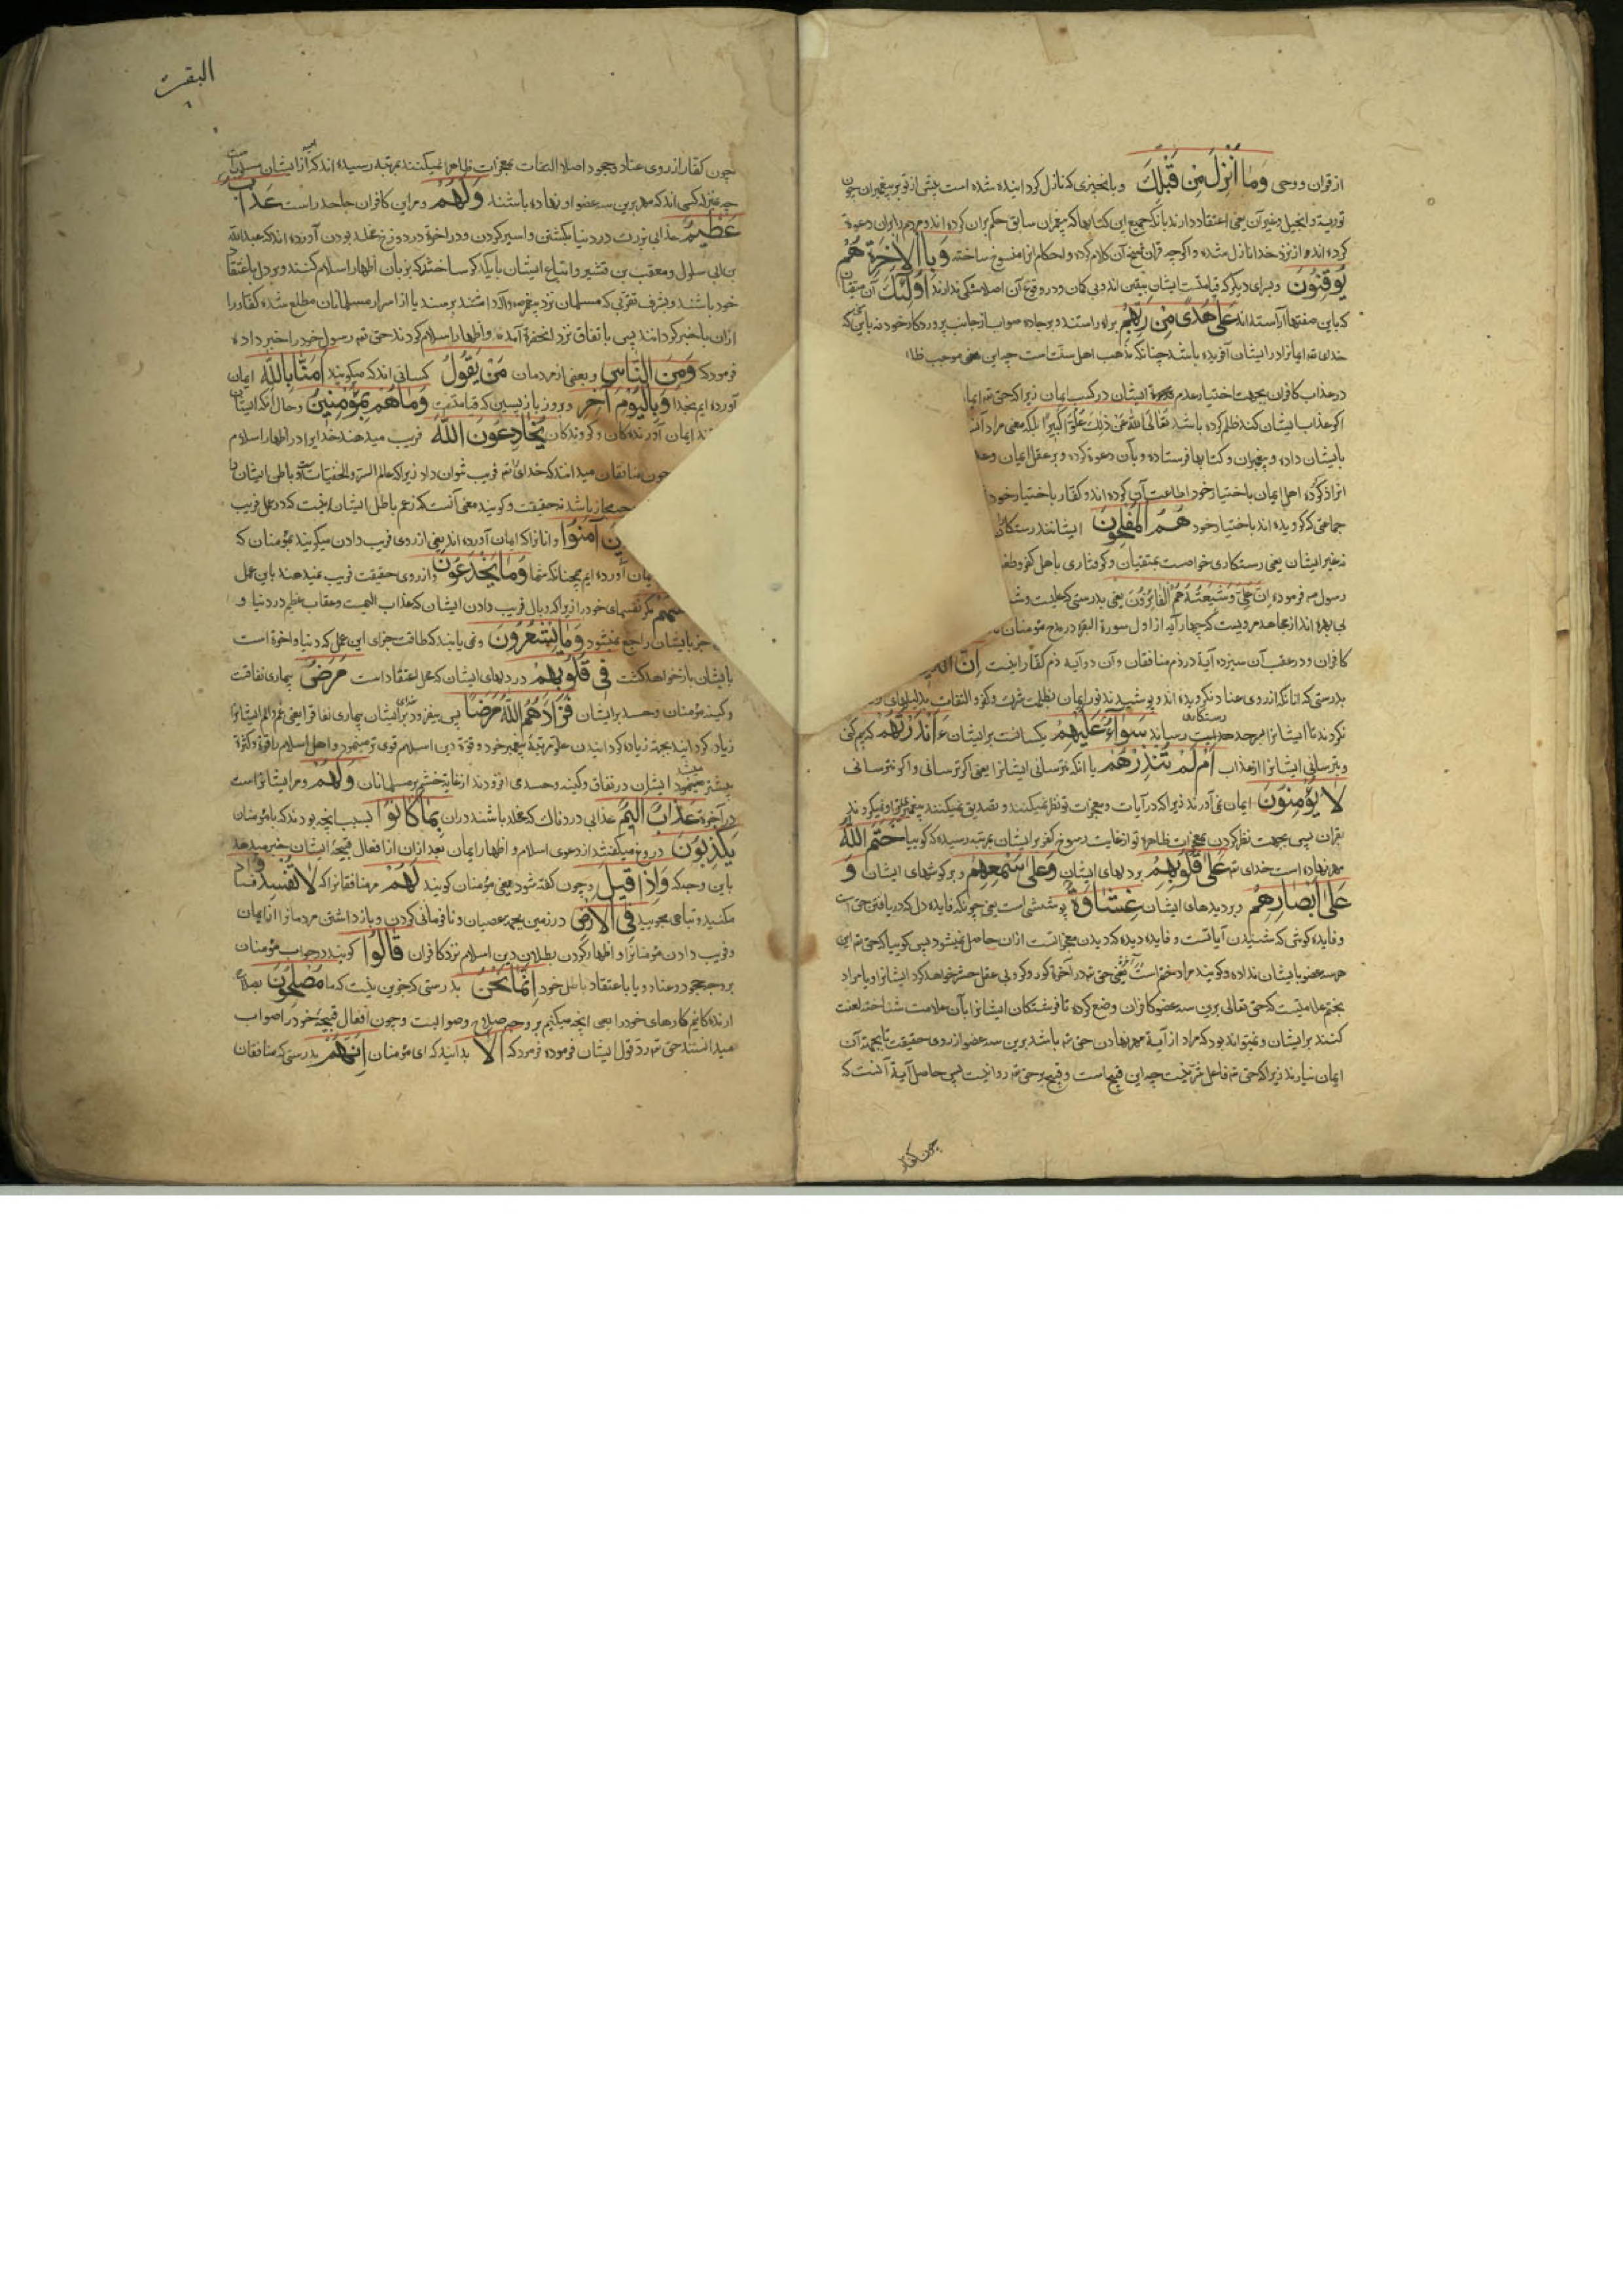 از قران و وحی وَمَا أُنْزِلَ مِنْ قَبْلِكَ و بانچیزی که نازل کردانیده شده است پیش از تو بر پیغمبران چون
توریة و انجیل و غیر آن یعنی اعتقاد دارند بانکه جمیع این کتابها که پیغمبران سابق حکم بران کرده اند و مردم را بران دعوة
کرده اند از نزد خدا نازل شده و اکرچه قران نسخ آن کلام کرده و احکام انرا منسوخ ساخته وَبِالْآخِرَةِ هُمْ
يُوقِنُونَ و بسرای دیکر که قیامتست ایشان بیقین اند و بی کمان و در وقوع آن اصلا شکی ندارند أُولَٰئِكَ آن متقیان
که باین صفتها آراسته اند عَلَىٰ هُدًى مِنْ رَبِّهِمْ براه راستند و بر جاده صواب از جانب پروردکار خود نه باین که
خدای تع ایمانرا در ایشان آفریده باشد چنانکه مذهب اهل سنت است چه این معنی موجب ظلم
در عذاب کافران بجهت اختیار عدم ایشان در کسب ایمان زیرا که حق تع
اکر عذاب ایشان کند ظلم کرده باشد تَعَالَى اللهُ عَنْ ذٰلِكَ عُلُوًّا كَبِيرًا بلکه معنی مراد آن
بایشان داده و پیغمبران و کتابها فرستاده و بآن دعوة کرده و بر عقل ایمان
کرده اهل ایمان باختیار خود اطاعت آن کرده اند و کفار باختیار خود
جماعتی که کرویده اند باختیار خود هُمُ الْمُفْلِحُونَ ایشانند رستکاران
نه غیر ایشان یعنی رستکاری خواصست بمتقیان و کرفتاری باهل کفر
رسول ص فرموده إِنَّ عَلِيًّا وَشِيعَتَهُ هُمُ الْفَائِزُونَ یعنی بدرستی که علیست
بی بهره اند از مجاهد مرویست که چهار آیه از اول سورة البقره در مدح مؤمنان
کافران و در عقب آن سیزده آیة در ذم منافقان و آن دو آیه ذم کفار اینست إِنَّ الَّذِينَ
بدرستی که انانکه از روی عناد نکرویده اند و پوشیدند نور ایمان بظلمت شرک و کفر و التفات
نکردند تا ایشانرا بسرحد هدایت رستکاری رساند سَوَاءٌ عَلَيْهِمْ یکسانست بر ایشان ءَأَنْذَرْتَهُمْ که بیم کنی
و بترسانی ایشانرا از عذاب أَمْ لَمْ تُنْذِرْهُمْ یا انکه نترسانی ایشانرا یعنی اکر ترسانی و اکر نترسانی
لَا يُؤْمِنُونَ ایمان نمی آورند زیرا که در آیات و معجزات تو نظر نمیکنند و تصدیق نمیکنند
بقران پس بجهت نظر نکردن بمعجزات ظاهره تو از غایت رسوخ کفر بر ایشان بمرتبه رسیده که کوییا خَتَمَ اللَّهُ
مهر نهاده است خدای تع عَلَىٰ قُلُوبِهِمْ بر دلهای ایشان وَعَلَىٰ سَمْعِهِمْ و بر کوشهای ایشان وَ
عَلَىٰ أَبْصَارِهِمْ و بر دیدهای ایشان غِشَاوَةٌ پوششی است یعنی چونکه فایده دل که دریافتن حق است
و فایده کوش که شنیدن آیاتست و فایده دیده که دیدن معجزاتست ازان حاصل نمیشود پس کوییا که حق تع این
هر سه عضو بایشان نداده و کویند مراد ختم است یعنی حق تع در آخرة کور و کر و بی عقل حشر خواهد کرد ایشانرا و یا مراد
بختم علامتیست که حق تعالی برین سه عضو کافران وضع کرده تا فرشتکان ایشانرا بآن علامت شناخته لعنت
کنند بر ایشان و نمیتواند بود که مراد از آیة مهر نهادن حق تع باشد برین سه عضو از روی حقیقت تا بجهة آن
ایمان نیارند زیرا که حق تع فاعل شر نیست چه این قبیحاست و قبیح بر حق تع روا نیست پس حاصل آیة آنست که
چون کفار
البقرة
چون کفار از روی عناد و جحود اصلا التفات بمعجزات ظاهره نمیکنند بمرتبه رسیده اند که از ایشان
چه بمنزله کسی اند که مهر برین سه عضو او نهاده باشند وَلَهُمْ و مر این کافران جاحد راست عَذَابٌ
عَظِيمٌ عذابی بزرک در دنیا بکشتن و اسیر کردن و در اخرة در دوزخ مخلد بودن آورده اند که عبدالله
بن ابی سلول و معقب بن قشیر و اتباع ایشان با یکدکر ساختند که بزبان اظهار اسلام کنند و بر دل باعتقاد
خود باشند و بشرف تقربی که مسلمان نزد پیغمبر ص و آله داشتند برسند یا از اسرار مسلمانان مطلع شده کفار را
ازان باخبر کردانند پس باتفاق نزد انحضرة آمدند و اظهار اسلام کردند حق تع رسول خود را خبر داده
فرمود که وَمِنَ النَّاسِ و بعضی از مردمان مَنْ يَقُولُ کسانی اند که میکویند آمَنَّا بِاللَّهِ ایمان
آورده ایم بخدا وَبِالْيَوْمِ الْآخِرِ و بروز بازپسین که قیامتست وَمَا هُمْ بِمُؤْمِنِينَ و حال آنکه ایشان
ایمان آورندکان و کروندکان يُخَادِعُونَ اللَّهَ فریب میدهند خدایرا در اظهار اسلام
چون منافقان میدانند که خدای تع فریب نتوان داد زیرا که عالم السر و الخفیات است و باطن ایشان
مجاز باشد نه حقیقت و کویند معنی آنست که زعم باطل ایشان اینست که در عمل فریب
آمَنُوا و انانرا که ایمان آورده اند یعنی از روی فریب دادن میکویند بمؤمنان که
ایمان آورده ایم همچنانکه شما وَمَا يَخْدَعُونَ و از روی حقیقت فریب نمیدهند باین عمل
مکر نفسهای خود را زیرا که وبال فریب دادن ایشان که عذاب الیمست و عقاب عظیم در دنیا و
بایشان راجع نمیشود وَمَا يَشْعُرُونَ و نمی یابند که طاقت جزای این عمل که دنیا و اخرة است
بایشان باز خواهد کشت فِي قُلُوبِهِمْ در دلهای ایشان که محل اعتقاد است مَرَضٌ بیماری نفاقست
و کینه مؤمنان و حسد بر ایشان فَزَادَهُمُ اللَّهُ مَرَضًا پس بیفزود خدا برای ایشان بیماری نفاقرا یعنی غم و الم ایشانرا
زیاد کردانید بجهة زیاده کردانیدن علو مرتبه پیغمبر خود و قوة دین اسلام قوی تر مینمود و اهل اسلام را قوة و کثرة
بیشتر میشد ایشان در نفاق و کینه و حسد می افزودند از غایة خشم بر مسلمانان وَلَهُمْ و مر ایشانراست
در آخرة عَذَابٌ أَلِيمٌ عذابی دردناک که مخلد باشند دران بِمَا كَانُوا بسبب انچه بودند که با مؤمنان
يَكْذِبُونَ دروغ میکفتند از دعوی اسلام و اظهار ایمان بعد ازان از افعال قبیحه ایشان خبر میدهد
باین وجه که وَإِذَا قِيلَ و چون کفته شود یعنی مؤمنان کویند لَهُمْ مر منافقانرا که لَا تُفْسِدُوا فساد
مکنید و تباهی مجویید فِي الْأَرْضِ در زمین بجهة عصیان و نافرمانی کردن و باز داشتن مردمانرا از ایمان
و فریب دادن مؤمنانرا و اظهار کردن بطلان دین اسلام نزد کافران قَالُوا کویند در جواب مؤمنان
بر وجه جحود و عناد و یا باعتقاد باطل خود إِنَّمَا نَحْنُ بدرستی که جزین نیست که ما مُصْلِحُونَ بصلاح
ارندکانیم کارهای خود را یعنی انچه میکنیم بر وجه صلاح و صوابست و چون افعال قبیحه خود را صواب
میدانستند حق تع رد قول ایشان فرموده فرمود که أَلَا بدانید که ای مؤمنان إِنَّهُمْ بدرستی که منافقان